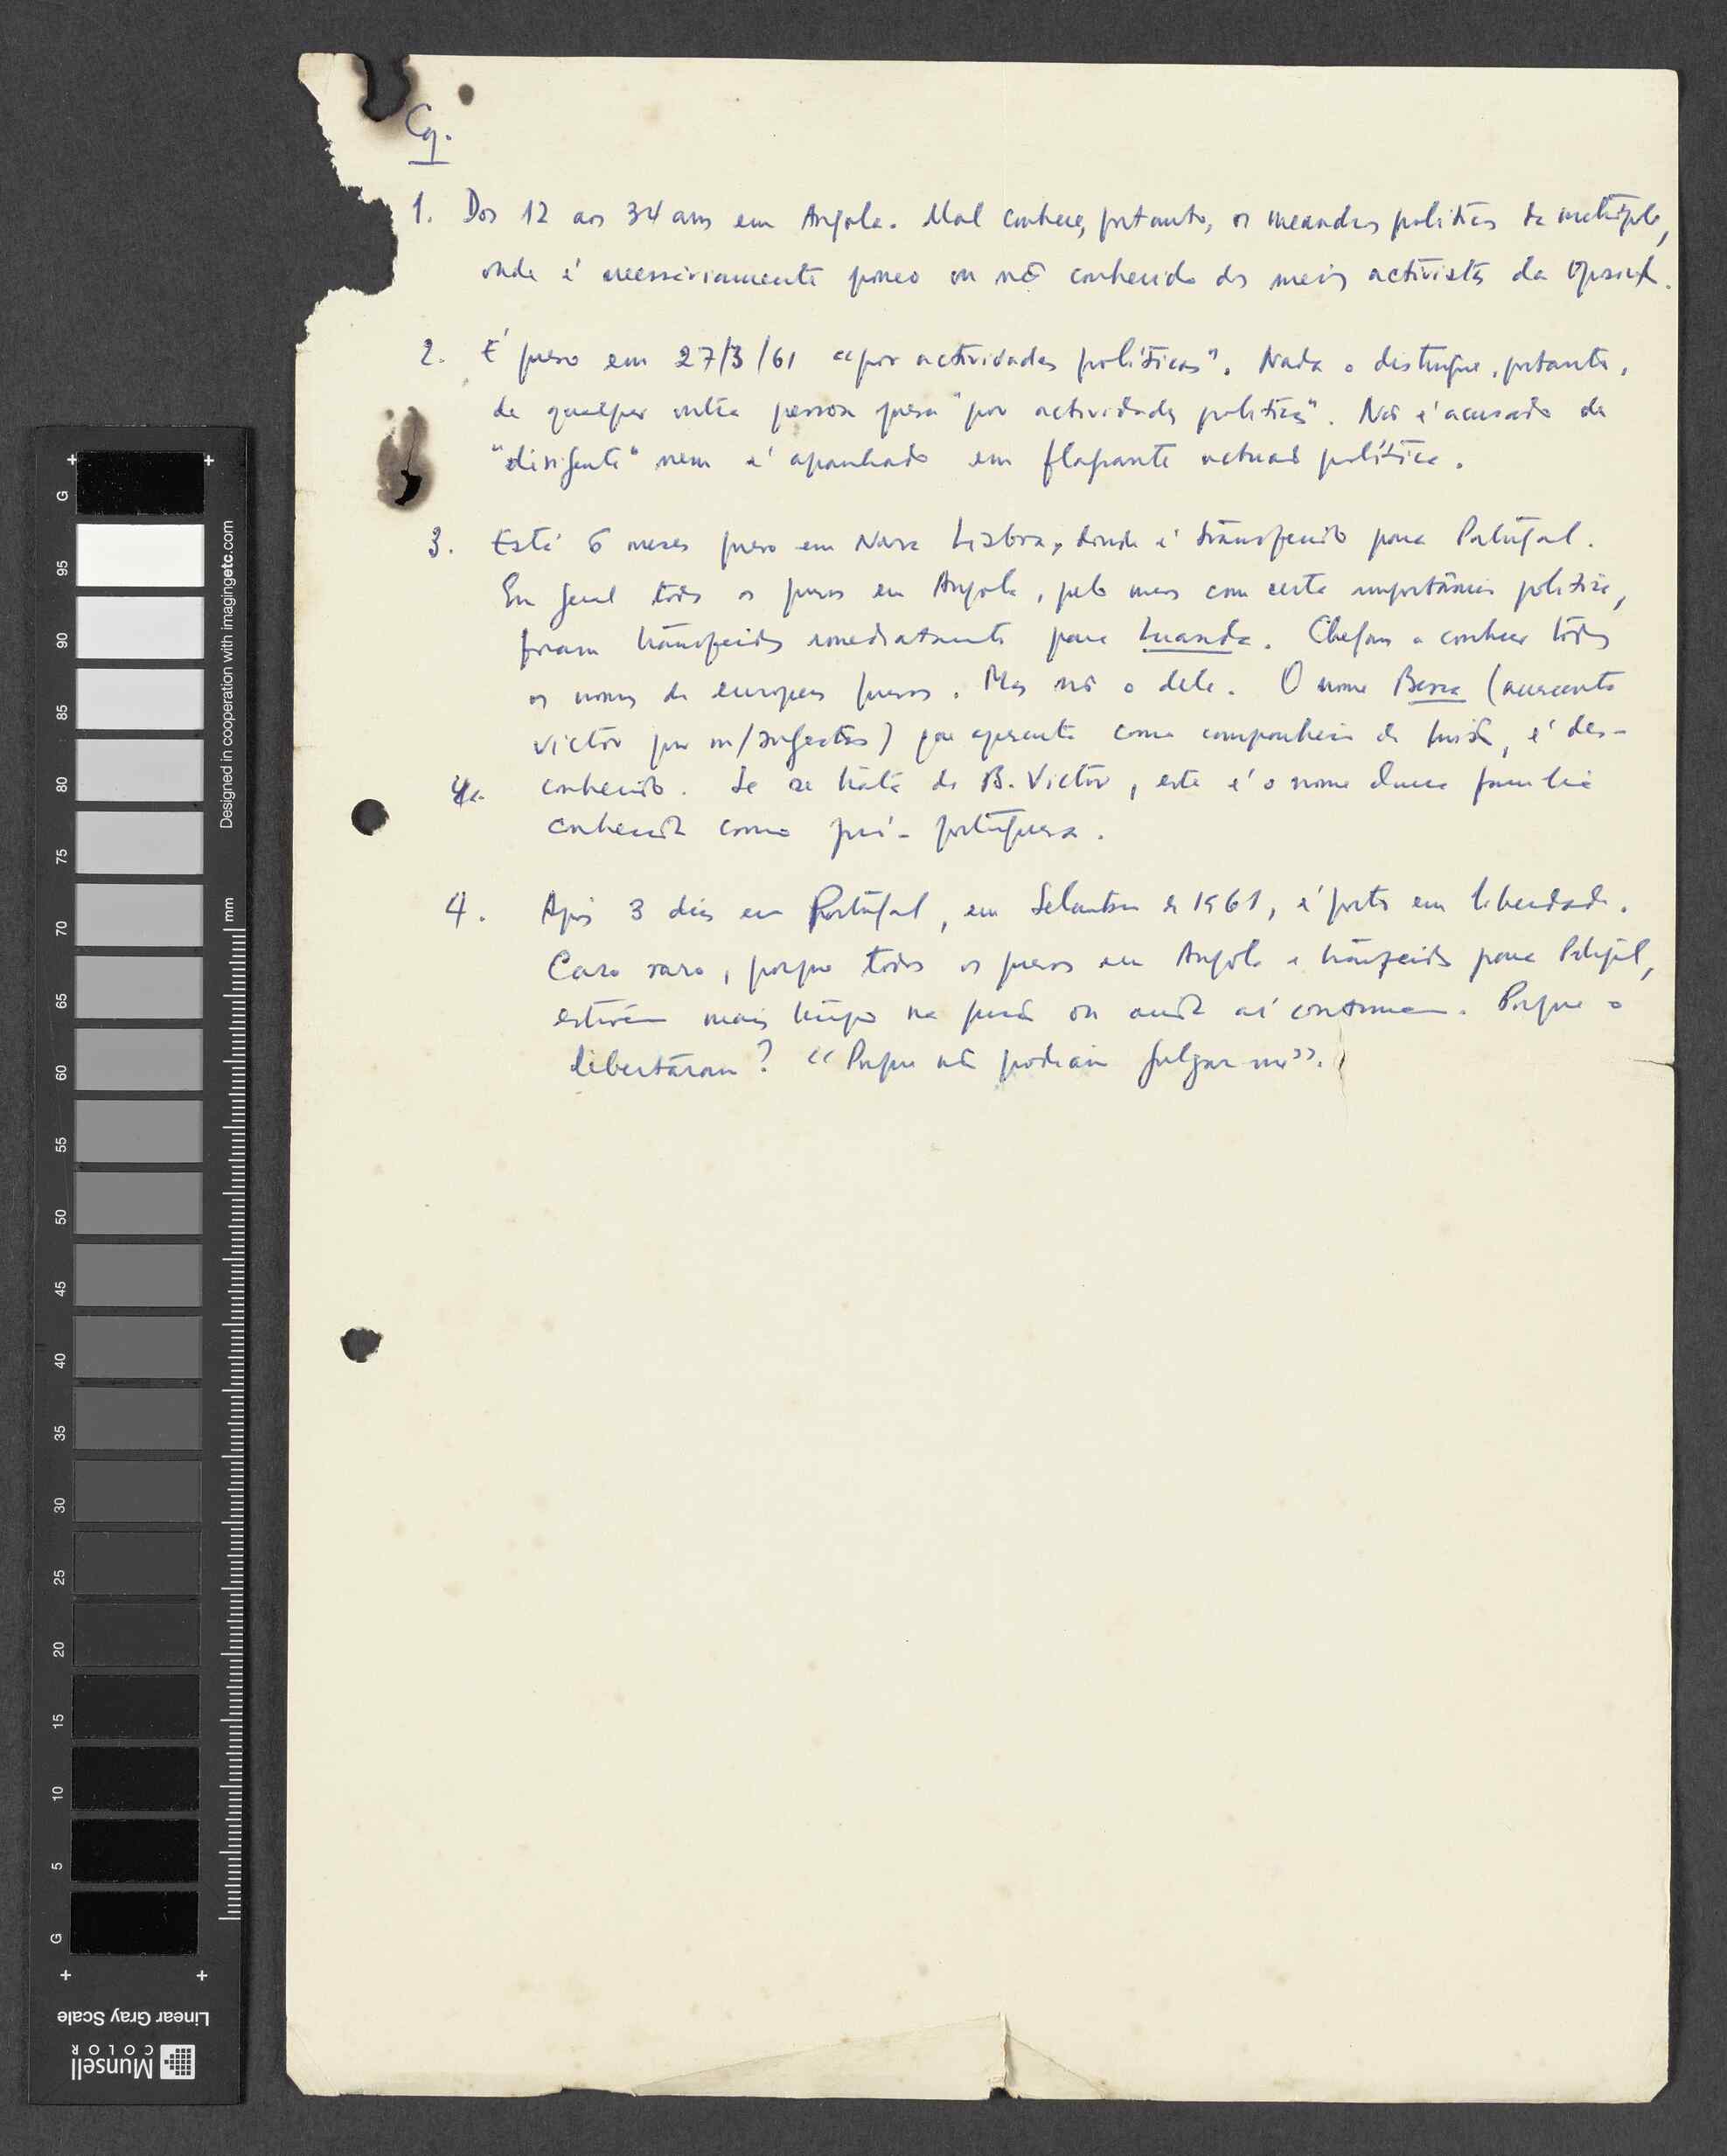 Cg.
1. Dos 12 aos 34 anos em Angola. Mal conhece, portanto, os meandros politicos da metrópole,
onde é necessàriamente pouco ou não conhecido dos meios activistas da Oposição.
2. É preso em 27/3/61 "por actividades políticas". Nada o distingue, portanto,
de qualquer outra pessoa presa "por actividades politicas". Não é acusado de
"dirigente" nem é apanhado em flagrante actuação política.
3. Está 6 meses preso em Nova Lisboa, donde é transferido para Portugal.
Em geral todos os presos em Angola, pelo menos com certa importância politica,
foram transferidos imediatamente para Luanda. Chegam a conhecer todos
os nomes de europeus presos. Mas não o dele. O nome Bessa (acrescenta
Victor por m/sugestão) que apresenta como companheiro de prisão, é des-
conhecido. Se se trata de B. Victor, este é o nome duma familia
conhecida como pró-portuguesa.
4. Após 3 dias em Portugal, em Setembro de 1961, é posto em liberdade.
Caso raro, porque todos os presos em Angola e transferidos para Portugal,
estiveram mais tempo na prisão ou ainda aí continuam. Porque o
libertaram? "Porque não podiam julgar-me".
G
95
90
85
80
75
70
65
60
55
50
45
40
35
30
25
20
15
10
5
G
mm
Designed in cooperation with imagingetc.com
Linear Gray Scale
Munsell
COLOR